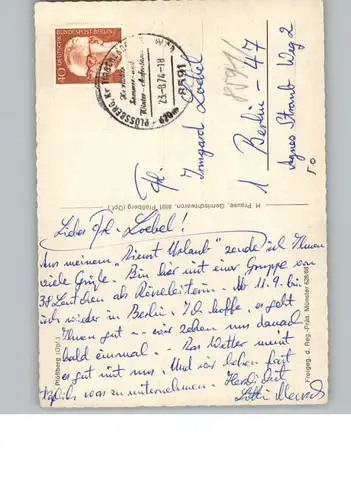 40
DEUTSCHE BUNDESPOST
PLÖSSBERG
8591
23-8.74-18
8591
Frl.
Irmgard Loebel
1 Berlin - 47
Agnes Straub Weg 2
H. Prause, Gemischtwaren, 8591 Plößberg (Opf.)
Liebes Frl. Loebel!
Aus meinem "Dienst Urlaub" sende ich Ihnen
viele Grüße. Bin hier mit einer Gruppe von
38 Leutchen als Reiseleiterin. Ab 11.9. bin
ich wieder in Berlin. Ich hoffe, es geht
Ihnen gut - wir sehen uns danach
bald einmal. - Das Wetter meint
es gut mit uns. Und wir haben fast
täglich was zu unternehmen. Herzlichst
Lotti
Plößberg (Opf.)
Freigeg. d. Reg.-Präs. Münster